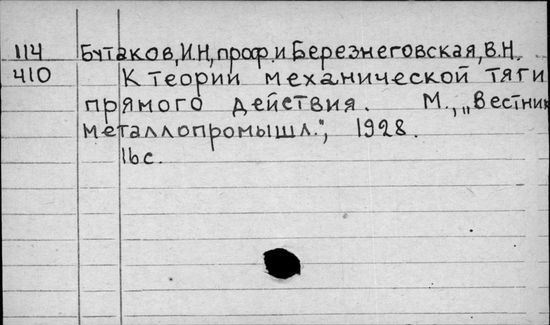 114 Бутаков, И.Н., проф. и Березнеговская, В.Н.
410 К теории механической тяги
прямого действия. М., „Вестник
металлопромышл.", 1928.
16 с.